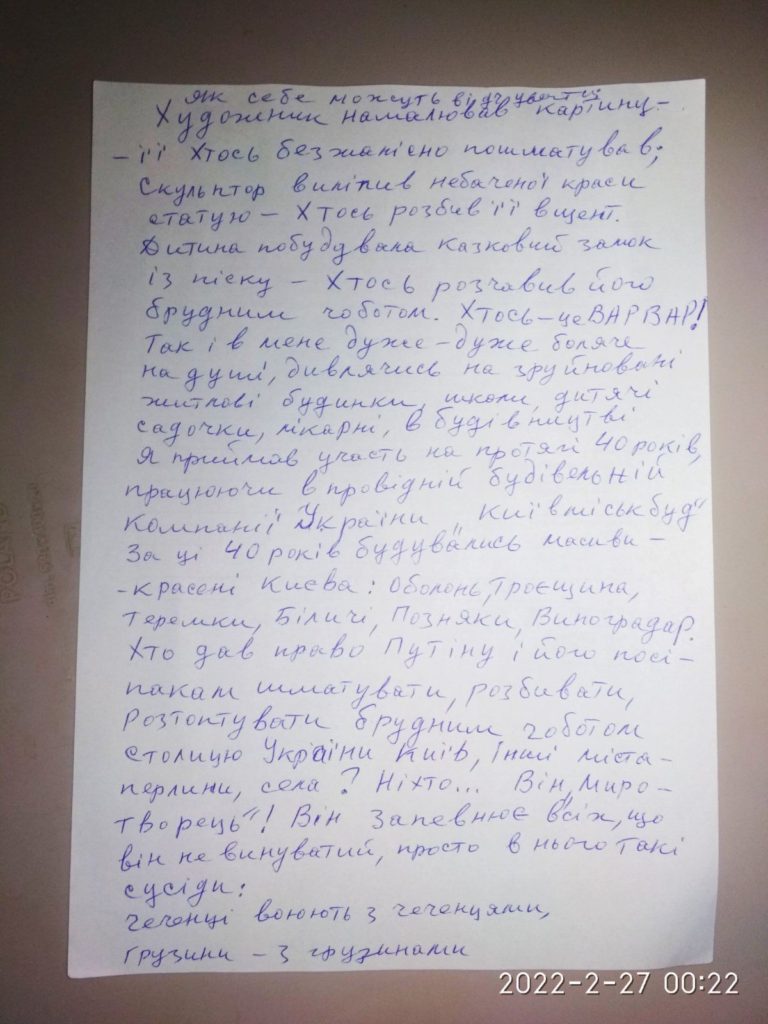 Як себе можуть відчувати
Художник намалював картину -
- її Хтось безжалісно пошматував;
Скульптор виліпив небаченої краси
статую - Хтось розбив її вщент.
Дитина побудувала казковий замок
із піску - Хтось розчавив його
брудним чоботом. Хтось - це ВАРВАР!
Так і в мене дуже-дуже боляче
на душі, дивлячись на зруйновані
житлові будинки, школи, дитячі
садочки, лікарні, в будівництві
я приймав участь на протязі 40 років,
працюючи в провідній будівельній
компанії України „Київміськбуд"
За ці 40 років будувались масиви -
- красені Києва: Оболонь, Троєщина,
Теремки, Біличі, Позняки, Виноградар.
Хто дав право Путіну і його посі-
пакам шматувати, розбивати,
розтоптувати брудним чоботом
столицю України Київ, інші міста-
перлини, села? Ніхто... Він „миро-
творець"! Він запевнює всіх, що
він не винуватий, просто в нього такі
сусіди:
чеченці воюють з чеченцями,
грузини - з грузинами
2022-2-27 00:22